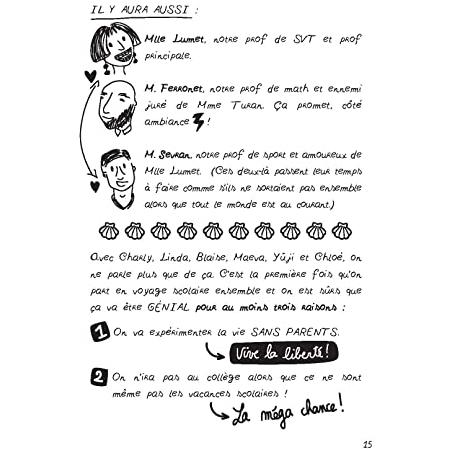 IL Y AURA AUSSI :
Mlle Lumet, notre prof de SVT et prof
principale.
M. Ferronet, notre prof de math et ennemi
juré de Mme Turan. Ça promet, côté
ambiance !
M. Sevran, notre prof de sport et amoureux de
Mlle Lumet. (Ces deux-là passent leur temps
à faire comme s'ils ne sortaient pas ensemble
alors que tout le monde est au courant.)
Avec Charly, Linda, Blaise, Maeva, Yûji et Chloé, on
ne parle plus que de ça. C'est la première fois qu'on
part en voyage scolaire ensemble et on est sûrs que
ça va être GÉNIAL pour au moins trois raisons :
1 On va expérimenter la vie SANS PARENTS.
Vive la liberté !
2 On n'ira pas au collège alors que ce ne sont
même pas les vacances scolaires !
La méga chance !
15